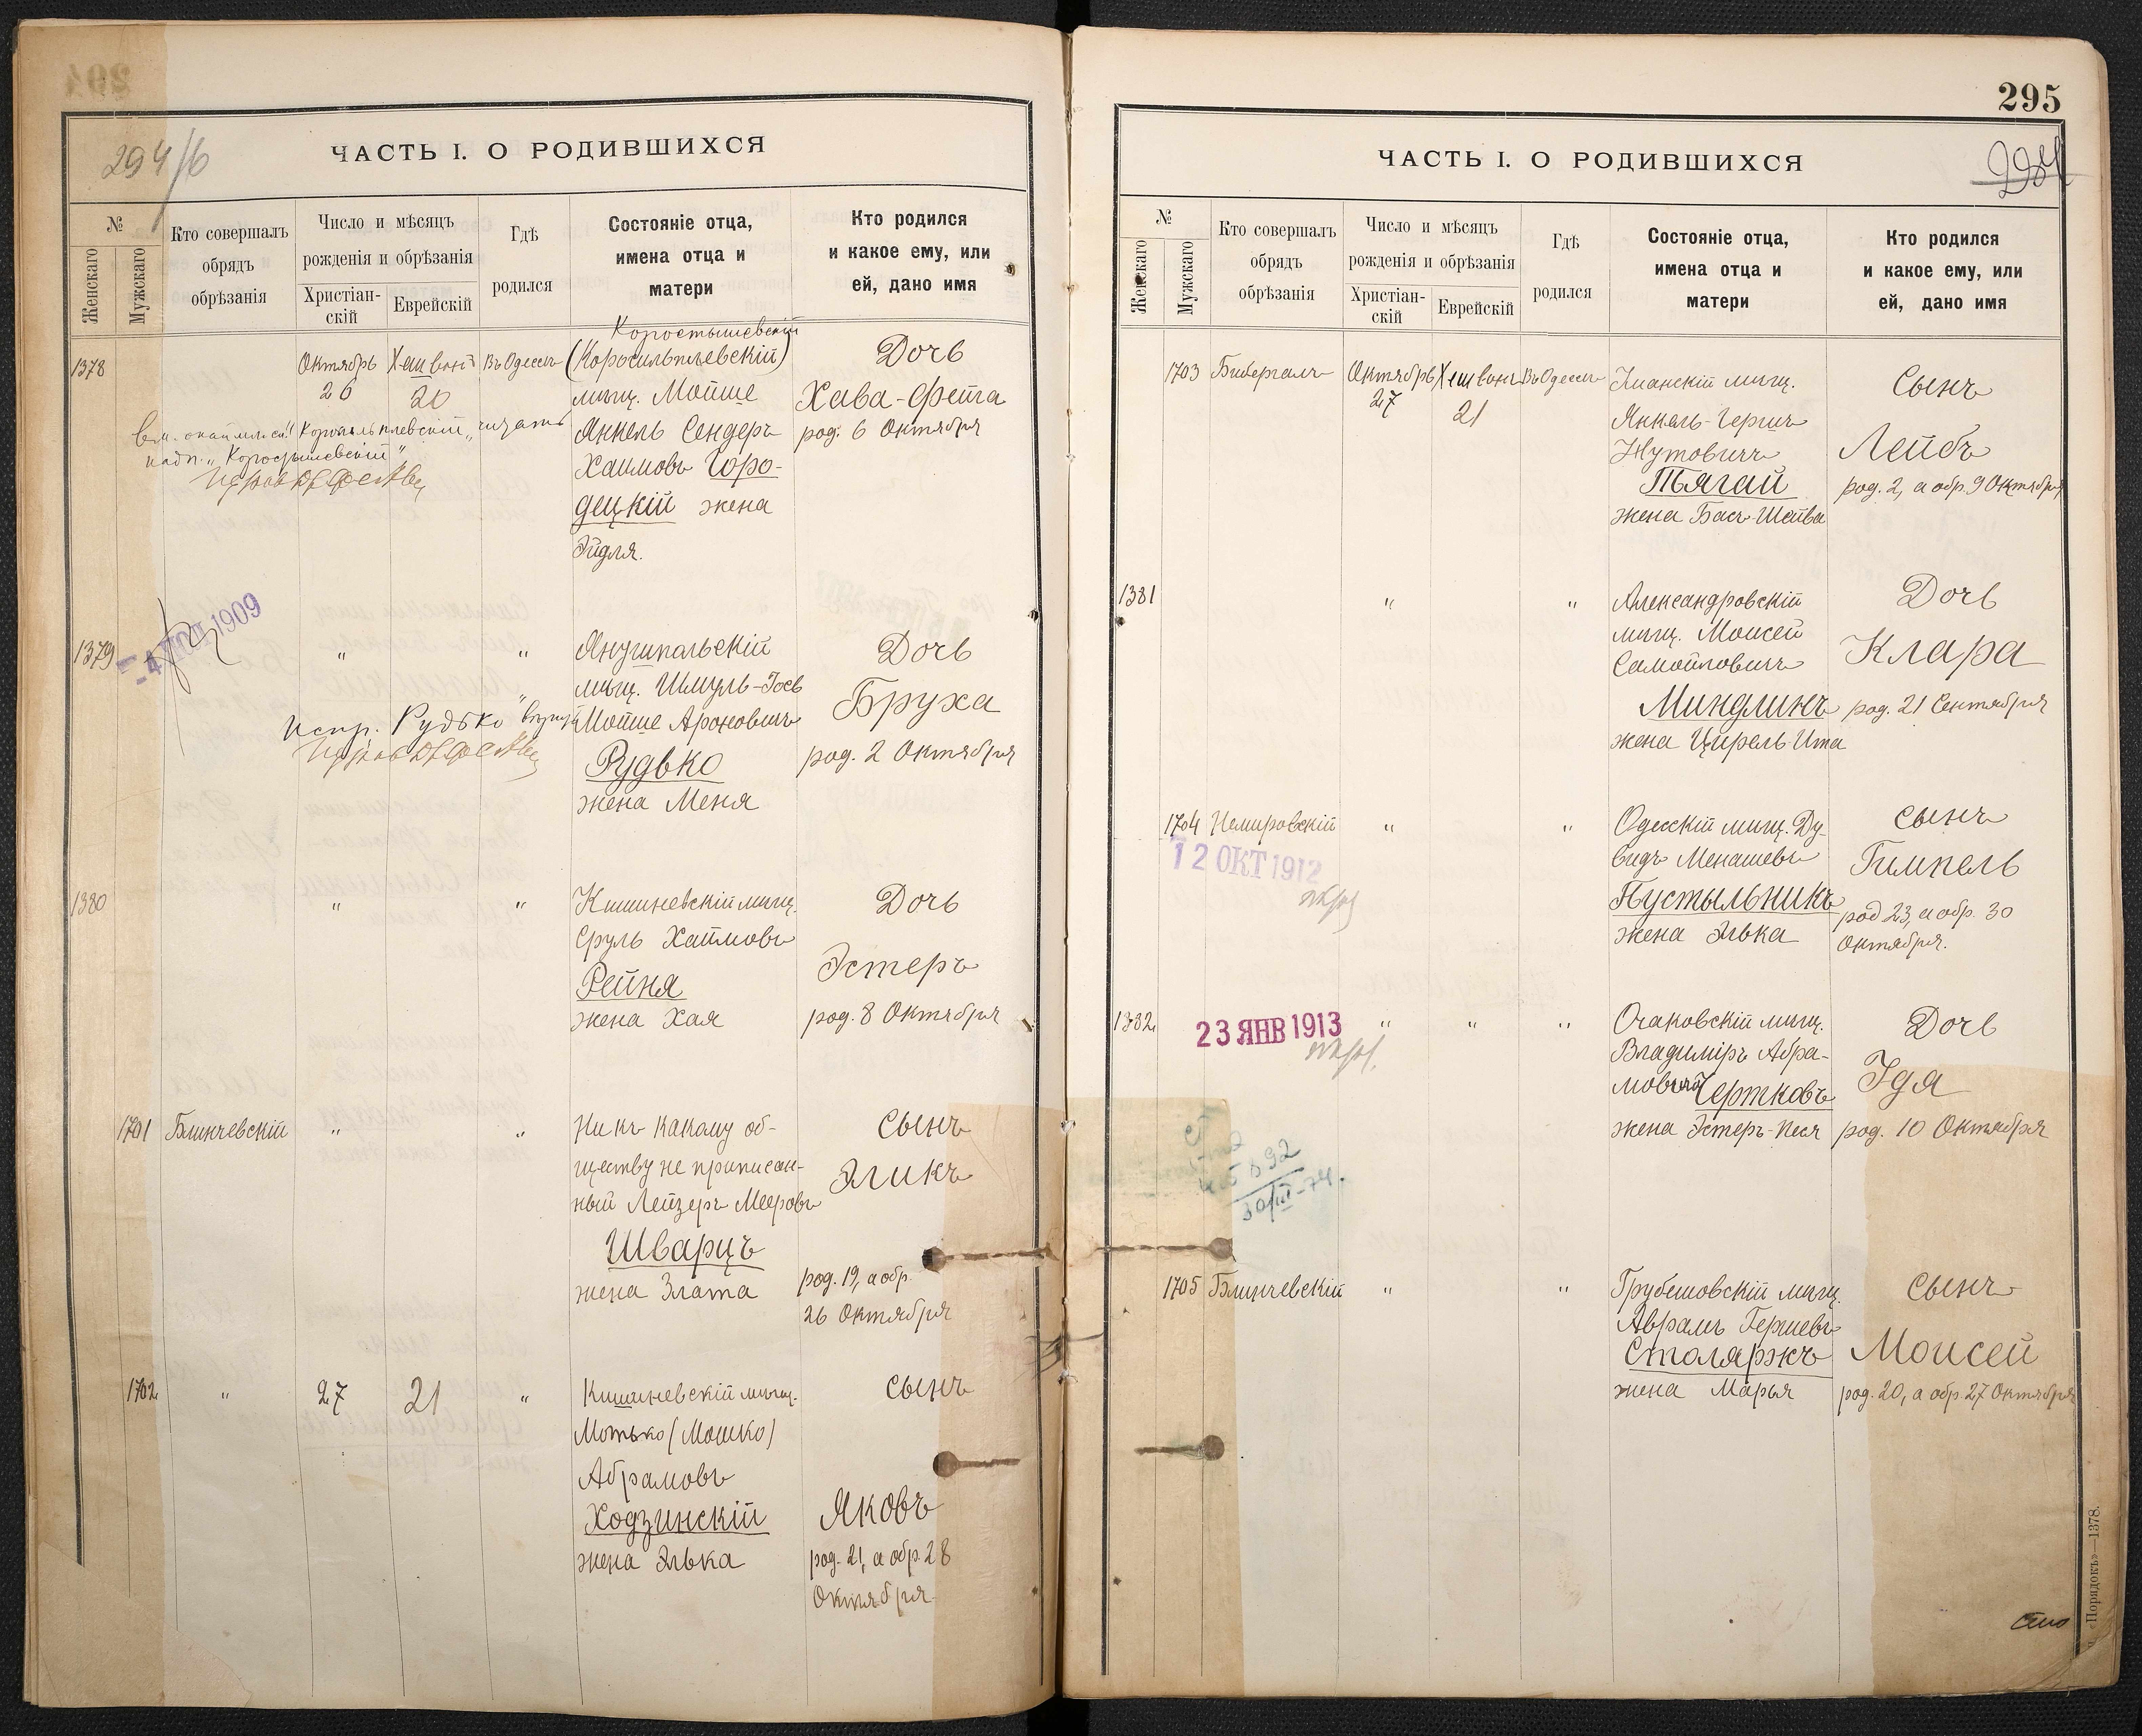 294/б
ЧАСТЬ I. О РОДИВШИХСЯ
№
Женскаго
Мужскаго
Кто совершалъ
обрядъ
обрѣзанія
Число и мѣсяцъ
рожденія и обрѣзанія
Христіан-
скій
Еврейскій
Гдѣ
родился
Состояніе отца,
имена отца и
матери
Кто родился
и какое ему, или
ей, дано имя
Коростышевскій
1378
Октябрь
26
Хешвонъ
20
Въ Одессѣ
мѣщ. Мойше
Янкель Сендеръ
Хаимовъ Горо-
децкій жена
Эйдля.
Дочь
Хава-Фейга
род. 6 Октября
надп. „Коростышевскій"
- 4 1909
1379
"
"
Янушпольскій
мѣщ. Шмуль-Іосъ
Мойше Ароновичъ
Рудько
жена Меня
Дочь
Бруха
род. 2 Октября
Испр. „Рудько"
1380
"
"
Кишиневскій мѣщ.
Сруль Хаимовъ
Рейня
жена Хая
Дочь
Эстеръ
род. 8 Октября
1701
Блинчевскій
"
"
Ни къ какому об-
ществу не приписан-
ный Лейзеръ Мееровъ
Шварцъ
жена Злата
Сынъ
Эликъ
род. 19, а обр.
26 Октября
1702
"
27
21
"
Кишиневскій мѣщ.
Мотько (Мошко)
Абрамовъ
Ходзинскій
жена Элька
Сынъ
Яковъ
род. 21, а обр. 28
Октября
295
ЧАСТЬ I. О РОДИВШИХСЯ
№
Женскаго
Мужскаго
Кто совершалъ
обрядъ
обрѣзанія
Число и мѣсяцъ
рожденія и обрѣзанія
Христіан-
скій
Еврейскій
Гдѣ
родился
Состояніе отца,
имена отца и
матери
Кто родился
и какое ему, или
ей, дано имя
1703
Бибергалъ
Октябрь
27
Хешвонъ
21
Въ Одессѣ
мѣщ.
Янкель-Гершъ
Нутовичъ
Тягай
жена Бася-Шейва
Сынъ
Лейбъ
род. 2, а обр. 9 Октября
1381
"
"
Александровскій
мѣщ. Моисей
Самойловичъ
Миндлинъ
жена Цирель Ита
Дочь
Клара
род. 21 Сентября
1704
Немировскій
"
"
12 ОКТ 1912
Одесскій мѣщ. Ду-
видъ Менашевъ
Пустыльникъ
жена Элька
Сынъ
Гимпель
род 23, а обр. 30
Октября.
1382
23 ЯНВ 1913
"
"
"
Очаковскій мѣщ.
Владиміръ Абра-
мовичъ Чертковъ
жена Эстеръ-Песя
Дочь
Ида
род. 10 Октября
30/III-74.
1705
Блинчевскій
"
"
Грубешовскій мѣщ.
Аврамъ Гершевъ
Столяржъ
жена Марья
Сынъ
Моисей
род. 20, а обр. 27 Октября
«Порядокъ»—1378.